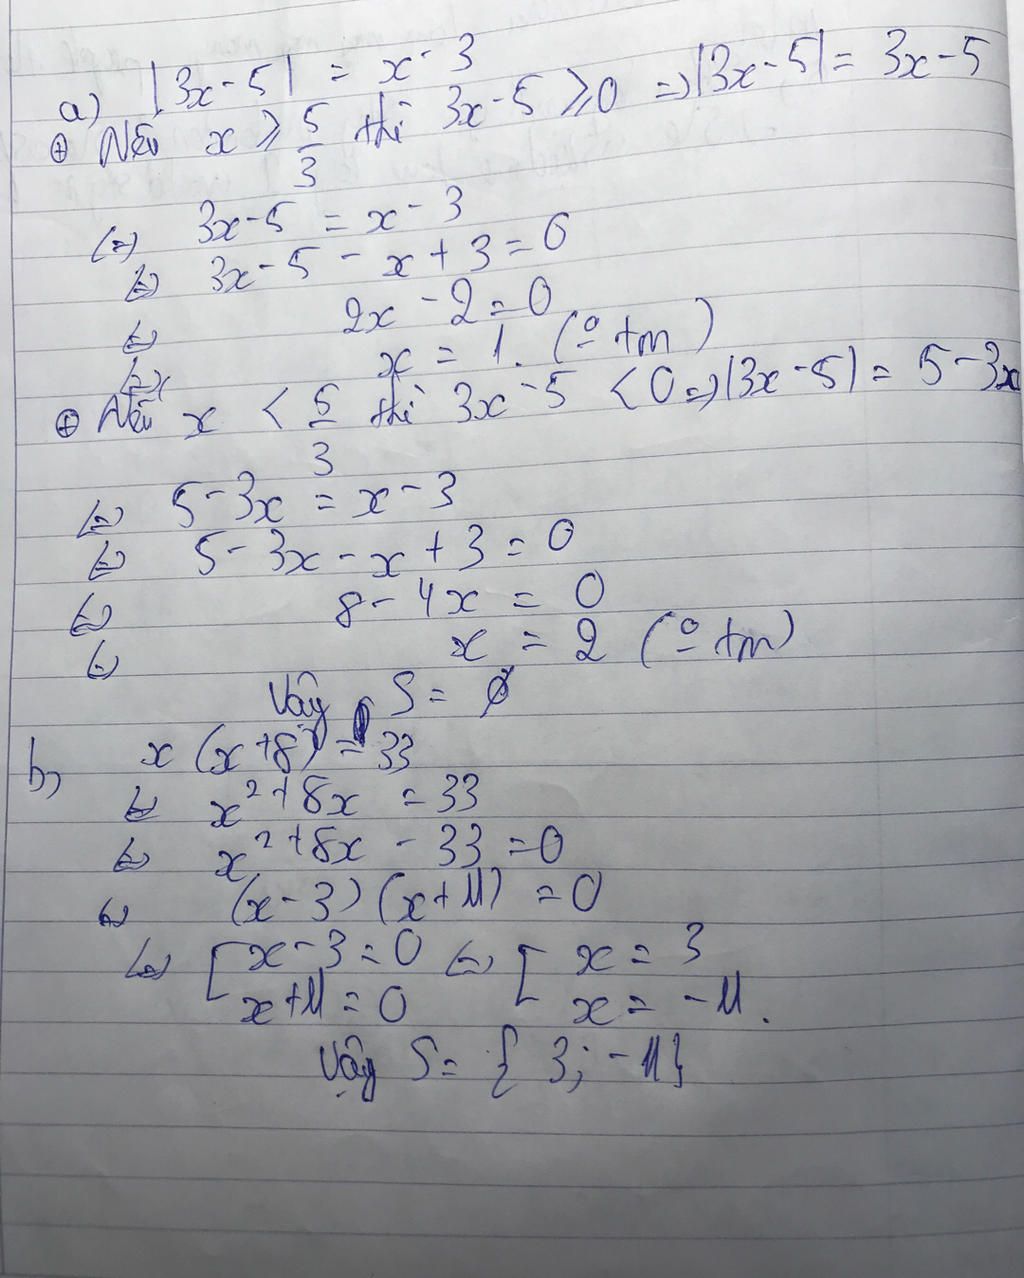 a) |3x-5| = x-3
⊕ Nếu x ≥ 5/3 thì 3x-5 ≥ 0 => |3x-5| = 3x-5
(=) 3x-5 = x-3
(=) 3x-5 - x + 3 = 0
(=) 2x - 2 = 0
(=) x = 1. (o tm)
⊕ Nếu x < 5/3 thì 3x-5 < 0 => |3x-5| = 5-3x
(=) 5-3x = x-3
(=) 5-3x-x+3 = 0
(=) 8-4x = 0
(=) x = 2 (o tm)
Vậy S = ∅
b, x(x+8) = 33
(=) x²+8x = 33
(=) x²+8x - 33 = 0
(=) (x-3)(x+11) = 0
(=) [ x-3=0 (=) [ x = 3
x+11=0 x = -11.
Vậy S = { 3; -11}